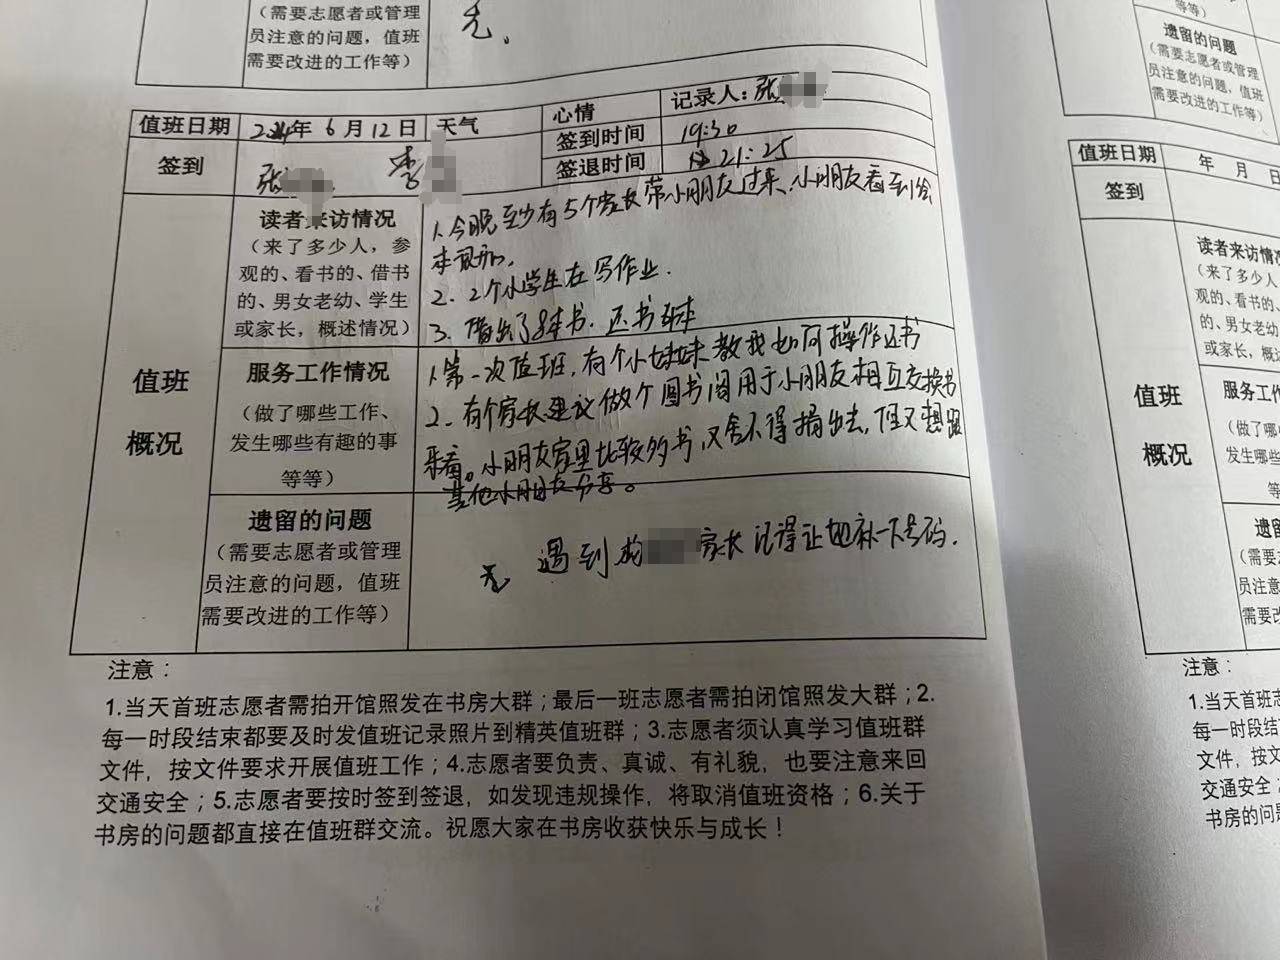 (需要志愿者或管理
员注意的问题，值班
需要改进的工作等)
无。
值班日期
2024年6月12日
天气
心情
记录人：张
签到
张 李
签到时间
19:30
签退时间
21:25
值班
概况
读者来访情况
(来了多少人，参
观的、看书的、借书
的、男女老幼、学生
或家长，概述情况)
1.今晚至少有5个家长带小朋友过来、小朋友看到绘
本
2. 2个小学生在写作业.
3. 借出了8本书. 还书 本
服务工作情况
(做了哪些工作、
发生哪些有趣的事
等等)
1.第一次值班，有个小妹妹教我如何操作还书
2. 有个家长建议做个图书阁用于小朋友相互交换书
来看。小朋友家里比较多书，又舍不得捐出去，但又想跟
其他小朋友分享。
遗留的问题
(需要志愿者或管理
员注意的问题，值班
需要改进的工作等)
无 遇到 家长记得让她补一下号码.
注意：
1.当天首班志愿者需拍开馆照发在书房大群；最后一班志愿者需拍闭馆照发大群；2.
每一时段结束都要及时发值班记录照片到精英值班群；3.志愿者须认真学习值班群
文件，按文件要求开展值班工作；4.志愿者要负责、真诚、有礼貌，也要注意来回
交通安全；5.志愿者要按时签到签退，如发现违规操作，将取消值班资格；6.关于
书房的问题都直接在值班群交流。祝愿大家在书房收获快乐与成长！
等等)
遗留的问题
(需要志愿者或管理
员注意的问题，值班
需要改进的工作等)
值班日期
年 月 日
签到
值班
概况
读者来访情
(来了多少人
观的、看书的
的、男女老幼
或家长，概
服务工作
(做了哪
发生哪些
等
遗留
(需要
员注意
需要改
注意：
1.当天首班志
每一时段结
文件，按文
交通安全
书房的问